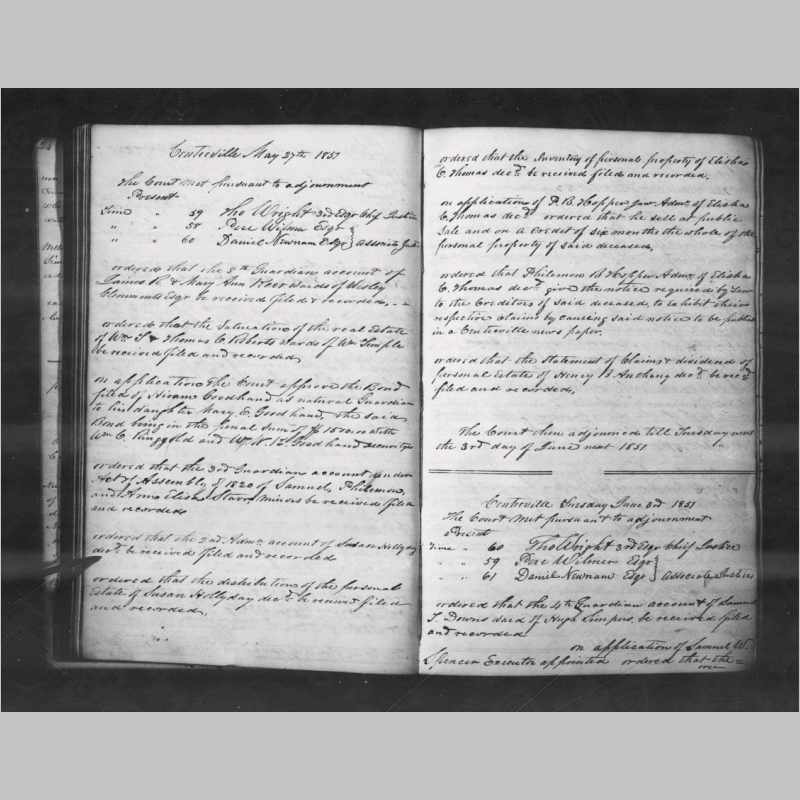 Centreville May 27th 1851
The Court met pursuant to adjournment
Present
Time " 59 Tho Wright 3rd Esqr Chief Justice
" " 58 Pere Wilmer Esqr
" " 60 Daniel Newnam Esqr } Associate Just
ordered that the 5th Guardian account of
James R. & Mary Ann wards of Wesley
Esqr be received filed & recorded.
ordered that the Valuation of the real Estate
of Wm S & Thomas C Roberts wards of Wm Temple
be received filed and recorded,
on application The Court approve the Bond
filed of Hiram Goodhand as natural Guardian
to his daughter Mary E. Goodhand, the said
Bond being in the penal sum of $ 1500 with
Wm C. Ringgold and Goodhand securities
ordered that the 3rd Guardian account under
Act of Assembly of 1820 of Samuel, Philemon,
and Ann Eliza Starr, minors be received filed
and recorded
ordered that the 2nd Admn. account of Susan Hollyday
decd. be received filed and recorded
ordered that the distribution of the personal
Estate of Susan Hollyday decd. be received filed
and recorded,
ordered that the Inventory of personal property of Elisha
C. Thomas decd. be received filed and recorded,
on application of P. B. Hopper Jnr. Admr. of Elisha
C Thomas decd. ordered that he sell at public
Sale and on a Credit of six months the whole of the
personal property of said deceased,
ordered that Philemon B. Hopper Admr. of Elisha
C. Thomas decd. give the notice required by Law
to the Creditors of said deceased, to exhibit their
respective Claims by causing said notice to be publish
in a Centreville news paper.
ordered that the Statement of Claims & dividend of
personal Estate of Henry B. Anthony decd. be recd
filed and recorded,
The Court then adjourned till Tuesday next
the 3rd day of June next 1851
Centreville Tuesday June 3rd 1851
The Court met pursuant to adjournment
Present
Time " 60 Tho Wright 3rd Esqr Chief Justice
" " 59 Pere Wilmer Esqr
" " 61 Daniel Newnam Esqr } Associate Justices
ordered that the 4th Guardian account of Samuel
T. Downs ward of Hugh be received filed
and recorded
on application of Samuel W.
Spencer Executor appointed ordered that the